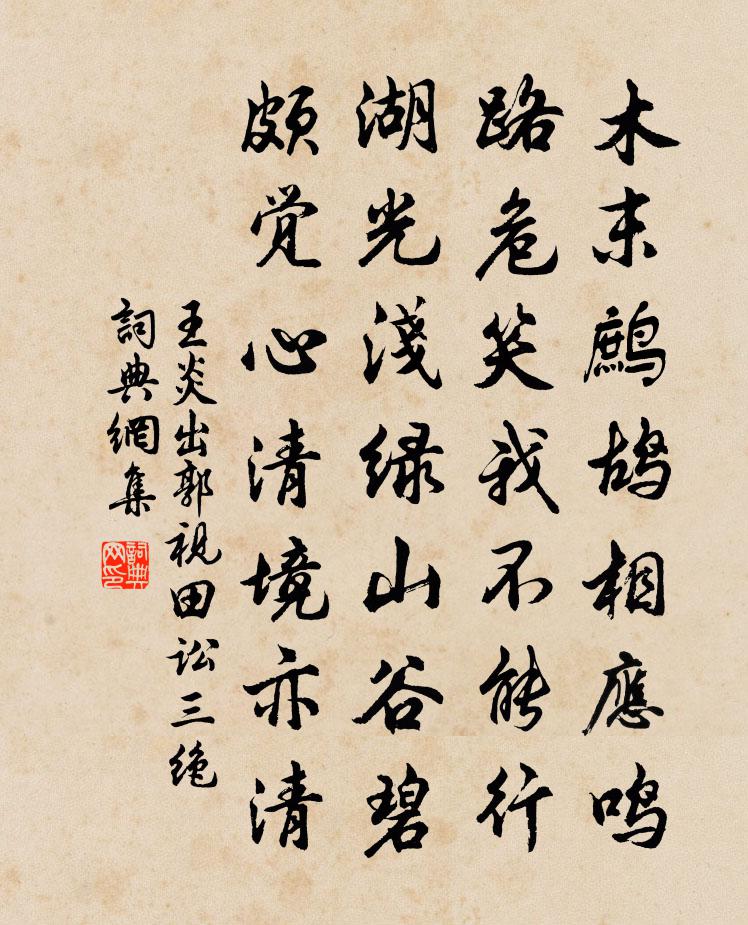 木末鷓鴣相應鸣
路危笑我不能行
湖光淺绿山谷碧
颇觉心清境亦清
王炎出郭視田讼三绝
詞典網集
詞典网印